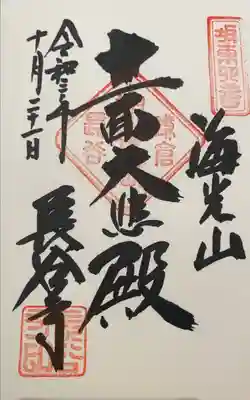 海光山
十一面大悲殿
鎌倉
長谷
長谷寺
令和三年
十月二十一日